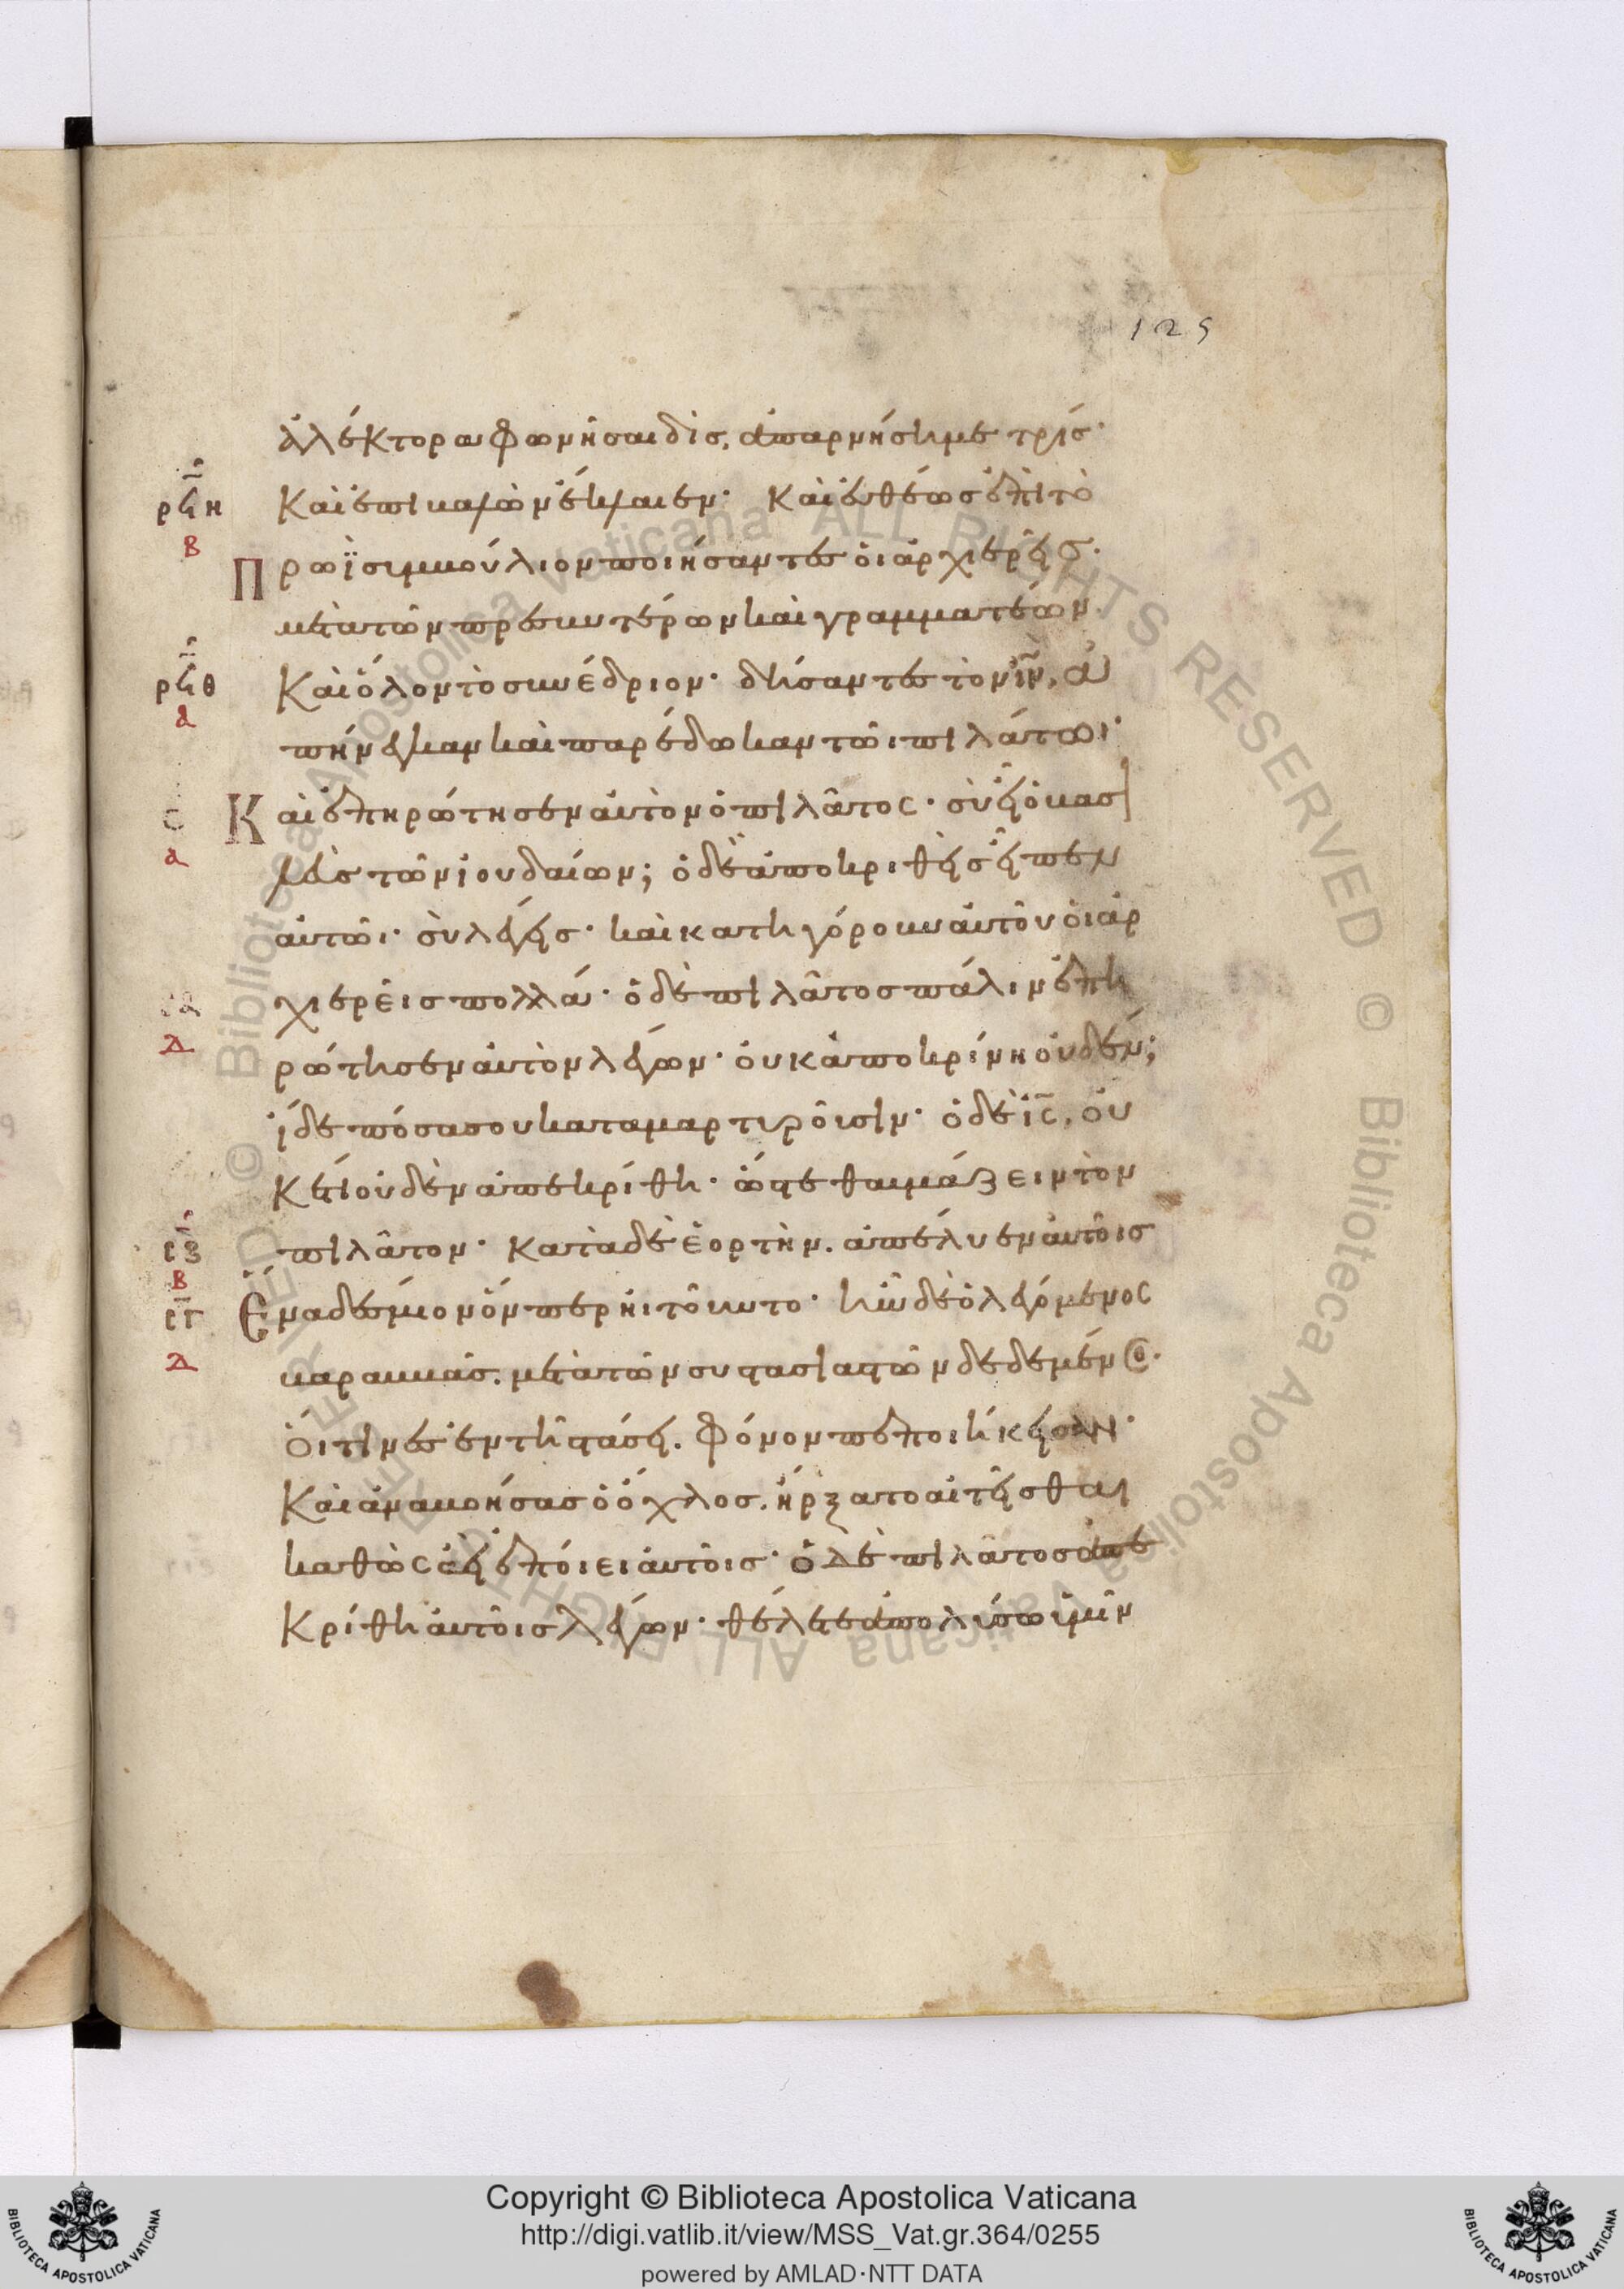 125
ἀλέκτορα φωνῆσαι δὶσ, ἀπαρνήσημε τρίσ·
ρϟη
Καὶ ἐπιβαλὼν ἔκλαιεν· Καὶ ἐυθέωσ ἐπὶ τὸ
Β
Πρωῒ συμβούλιον ποιήσαντεσ ὁι ἀρχιερεῖσ·
μετὰ τῶν πρεσβυτέρων καὶ γραμματέων
ρϟθ
Καὶ ὅλον τὸ συνέδριον· δήσαντεσ τὸν ἰν, ἀ
α
πήνεγκαν καὶ παρέδωκαν τῶι πιλάτωι·
Σ
Καὶ ἐπηρώτησεν ἀυτὸν ὁ πιλᾶτος· σὺ εἶ ὁ βασι
α
λεὺσ τῶν ἰουδαίων; ὁ δὲ ἀποκριθεὶσ εἶπεν
ἀυτῶι· σὺ λέγεισ· καὶ κατηγόρουν ἀυτοῦ ὁι ἀρ
χιερεῖσ πολλά· ὁ δὲ πιλᾶτοσ πάλιν ἐπη
Δ
ρώτησεν ἀυτὸν λέγων· ὀυκ ἀποκρίνη ὀυδέν;
ἴδε πόσα σου καταμαρτυροῦσιν· ὁ δὲ ἰς, ὀυ
Κέτι ὀυδὲν ἀπεκρίθη· ὥστε θαυμάζειν τὸν
πιλᾶτον· κατὰ δὲ ἑορτὴν. ἀπέλυεν ἀυτοῖσ
Β
Ἕνα δέσμιον ὅνπερ ἠιτοῦντο· ἦν δὲ ὁ λεγόμενος
βαραββᾶσ. μετὰ τῶν συστασιαστῶν δεδεμένος·
Δ
Ὅιτινεσ ἐν τῆ στάσει. φόνον πεποιήκεισαν·
Καὶ ἀναβοήσασ ὁ ὄχλοσ. ἤρξατο αἰτεῖσθαι
καθὼς ἀεὶ ἐποίει ἀυτοῖσ· ὁ δὲ πιλᾶτοσ ἀπε
Κρίθη ἀυτοῖσ λέγων· θέλετε ἀπολύσω ὑμῖν
Copyright © Biblioteca Apostolica Vaticana
http://digi.vatlib.it/view/MSS_Vat.gr.364/0255
powered by AMLAD·NTT DATA
BIBLIOTECA APOSTOLICA VATICANA
BIBLIOTECA APOSTOLICA VATICANA
© Biblioteca Apostolica Vaticana ALL RIGHTS RESERVED © Biblioteca Apostolica Vaticana ALL RIGHTS RESERVED